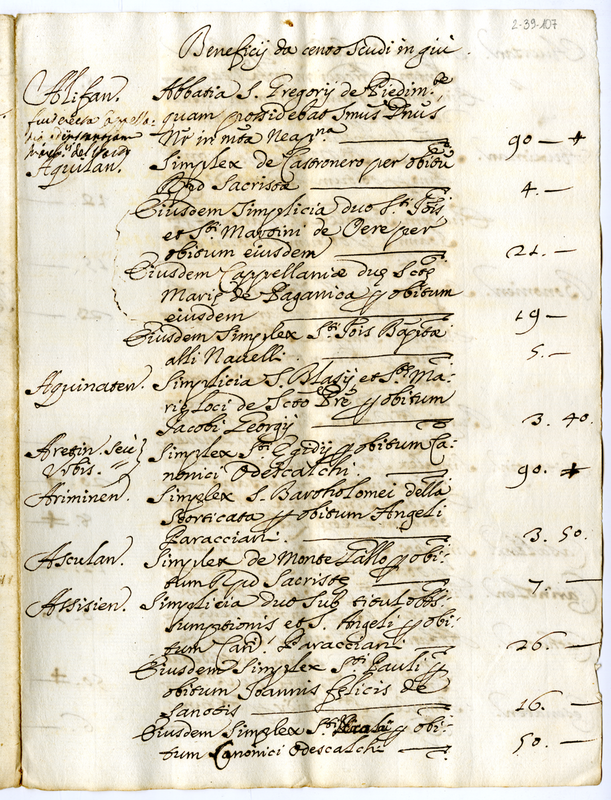 2-39-107
Beneficij da cento Scudi in giù.
Alifan. Abbatia S. Gregorij de Piedim.te
quam possidebat Smus Dnus
Nr in mta Neap.na 90 — +
Aquilan. Simplex de Castronero per obitū
Rnd Sacristæ 4. —
Eiusdem Simplicia duo S.ti Jois
et S.ti Martini de Oere per
obitum eiusdem 21. —
Eiusdem Cappellaniæ duæ Sctæ
Mariæ de Paganica p obitum
eiusdem 19 —
Eiusdem Simplex S.ti Jois Baptæ
alli Nauelli. 5. —
Aquinaten. Simplicia S. Blasij et S.tæ Ma-
riæ loci de Scto Pre p obitum
Jacobi Georgij 3. 40.
Aretin. seù Simplex S.ti Egidij p obitum Ca-
Vrbis. nonici Odescalchi. 90. +
Ariminen. Simplex S. Bartholomei della
Storticata p obitum Angeli
Paracciani. 3. 50.
Asculan. Simplex de Monte Gallo p obi-
tum Rnd Sacristæ 7. —
Assisien. Simplicia duo sub titul. Ass-
sumptionis et S. Angeli p obi-
tum Car. Paracciani 26. —
Eiusdem Simplex S.ti Pauli p
obitum Joannis Felicis de
Sanctis 16. —
Eiusdem Simplex S.ti p obi-
tum Canonici Odescalchi 50. —